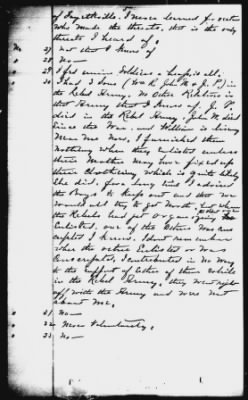 of Fayetteville. I never learned for certain
who made the threats, that is the only
threats I heard of.
27 Not that I know of
28 No—
29 I fed union Soldiers a heap is all.
30 I had 3 Sons (Wm H, John N & J. P.) in
the Rebel Army. No other Relatives in
that Army that I know of. J. P.
died in the Rebel Army. John N. died
Since the War. and William is living
Near me now. I furnished them
nothing when they Enlisted unless
their Mother may have fixed up
their clothing, which is quite likely
She did. for a long time I advised
the Boys to Keep out and that we
would all try to get North, but when
the Rebels had got over going
Enlisted. one of the others was con
scripted I know. I dont remember
when the others Enlisted or was
Conscripted, I contributed in No way
to the support of Either of them while
in the Rebel Army, they went right
off with the Army and were not
about me.
31 No—
32 Never Voluntarily.
33 No—